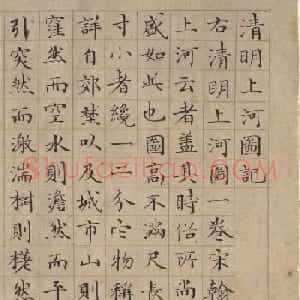 清明上河圖記
右清明上河圖一卷宋翰
上河云者蓋其時俗所尚
盛如此也圖高不滿尺長
寸小者纔一二分它物稱
詳自郊埜以及城市山則
窪然而空水則澹然而平
引突然而激湍樹則槎然